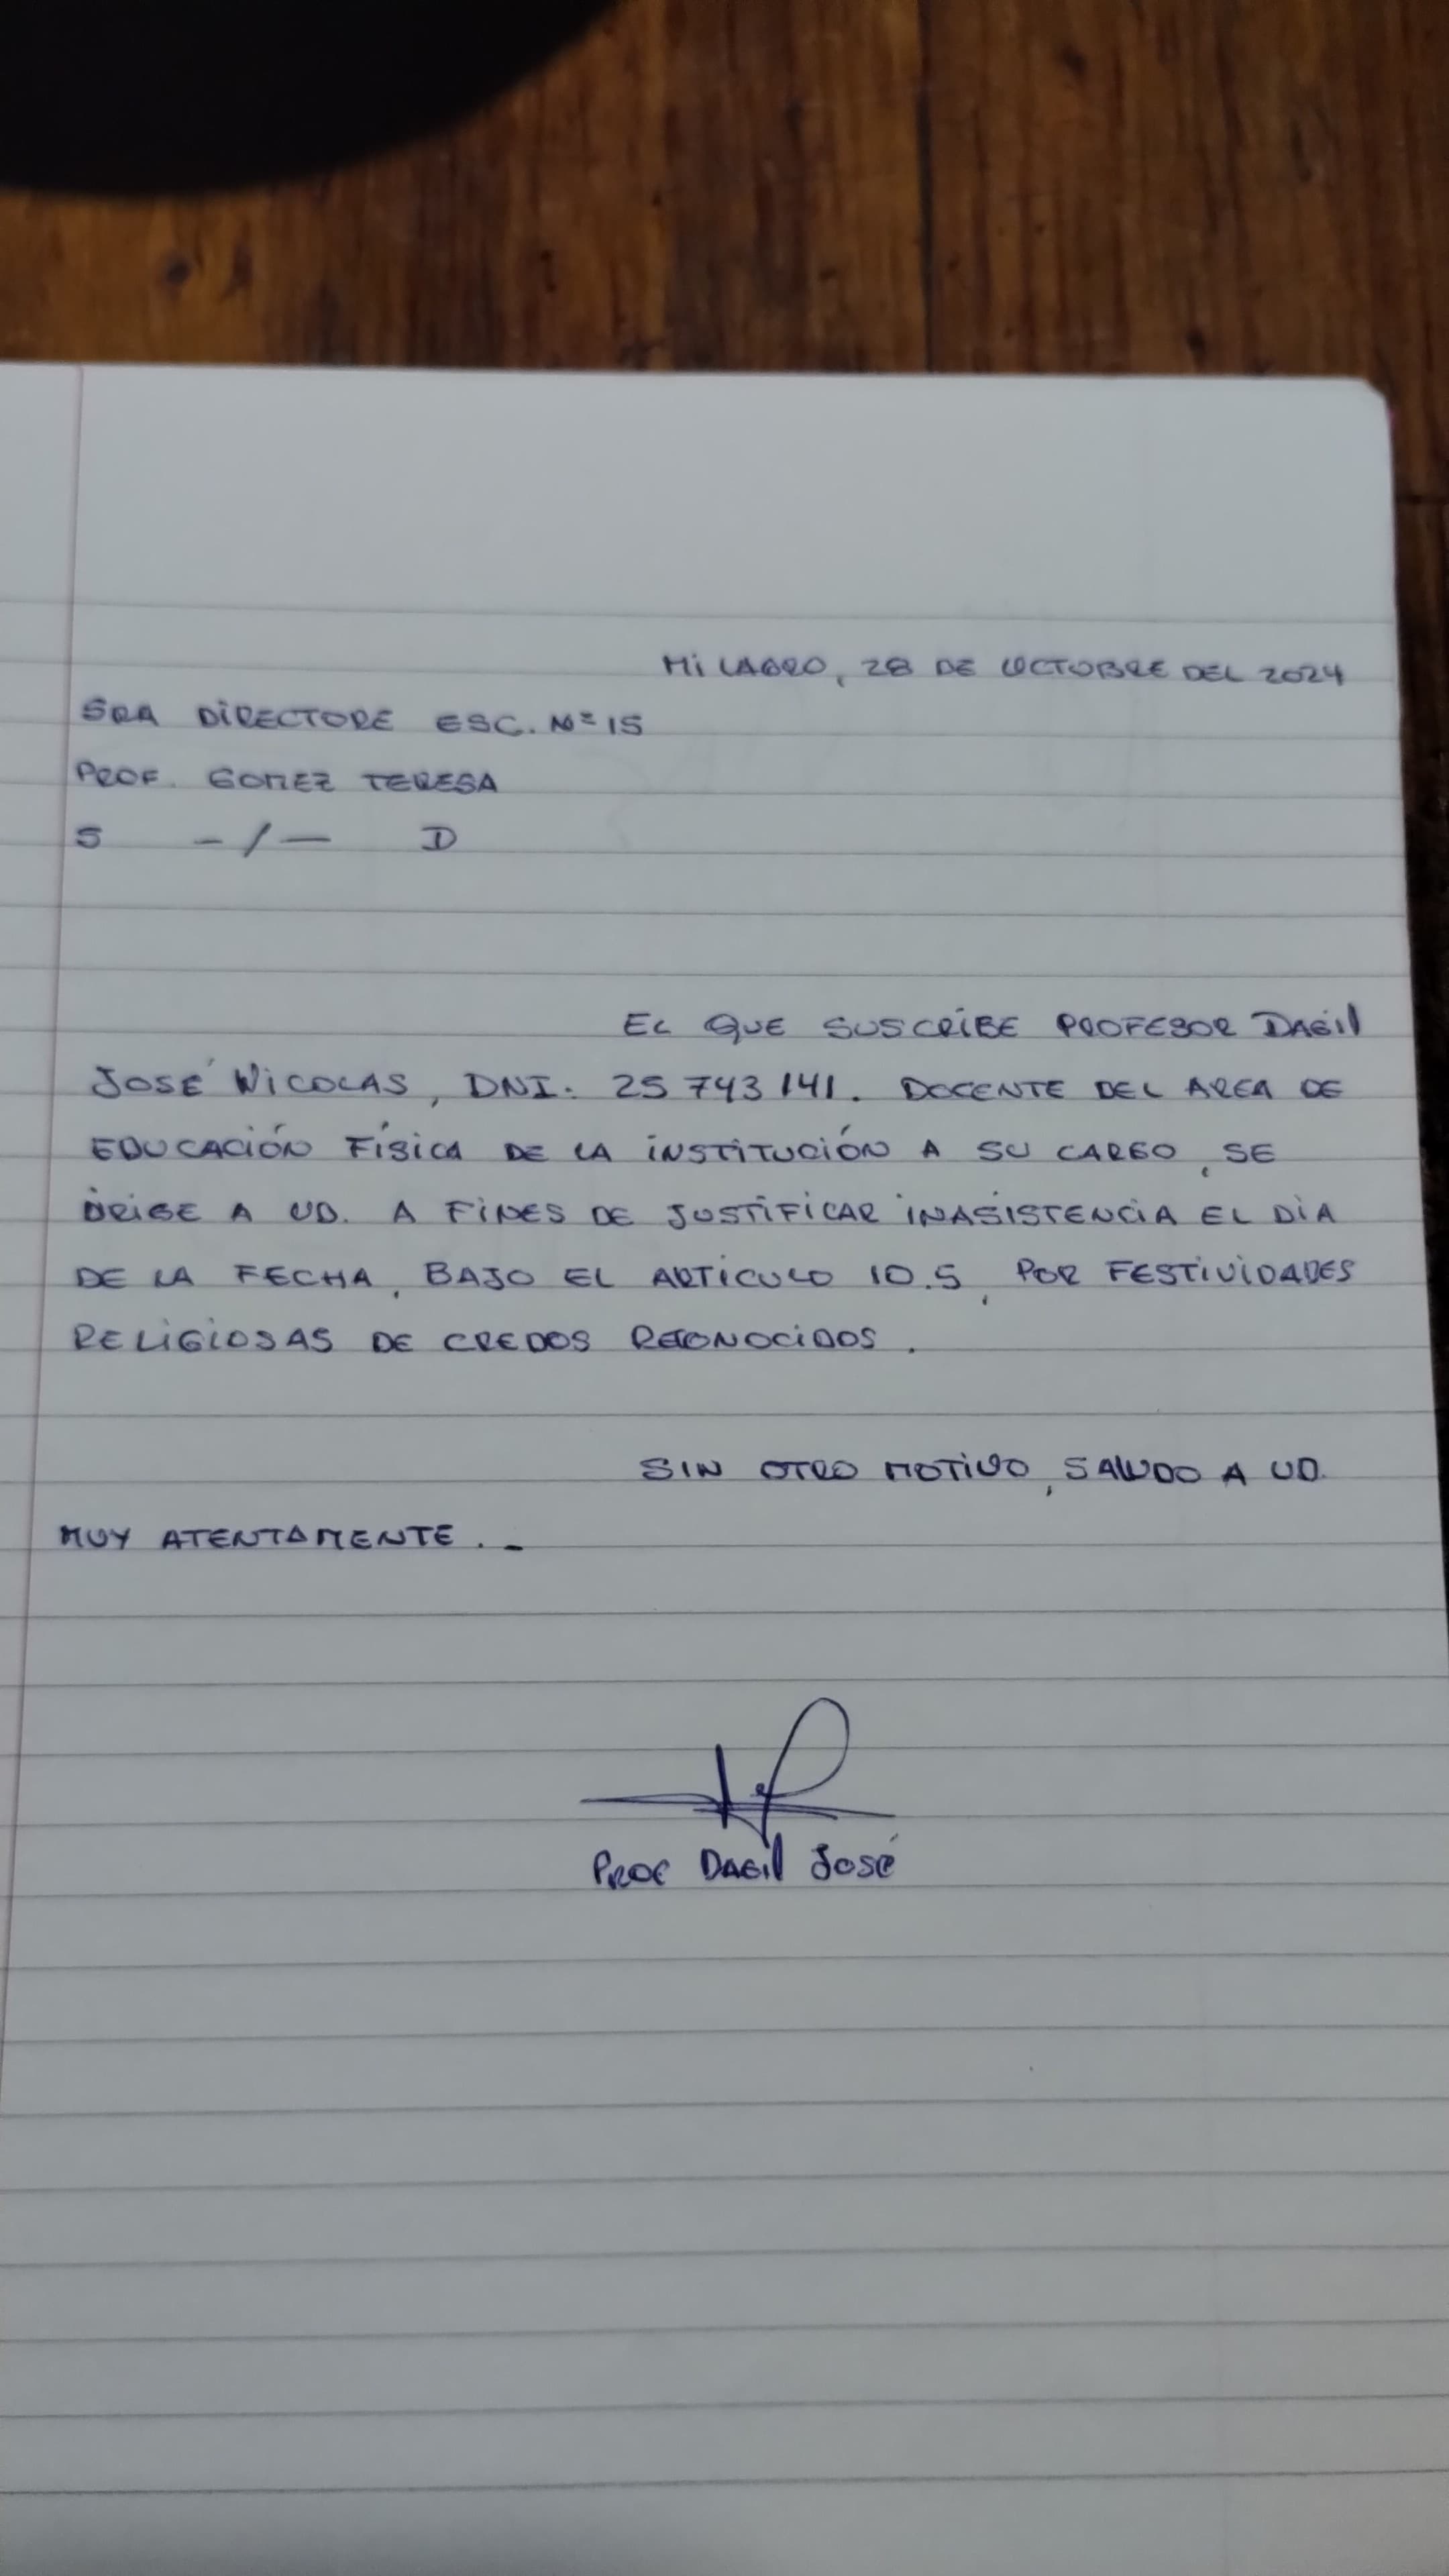 MILAGRO, 28 DE OCTOBRE DEL 2024
SRA DIRECTORE ESC. Nº 15
PROF. GOMEZ TERESA
S -/- D
EL QUE SUSCRIBE PROFESOR DAGIL
JOSÉ NICOLAS, DNI: 25 743 141. DOCENTE DEL AREA DE
EDUCACIÓN FÍSICA DE LA INSTITUCIÓN A SU CARGO, SE
DRIGE A UD. A FINES DE JUSTIFICAR INASISTENCIA EL DÍA
DE LA FECHA, BAJO EL ARTICULO 10.5, POR FESTIVIDADES
RELIGIOSAS DE CREDOS RECONOCIDOS.
SIN OTRO MOTIVO, SALUDO A UD.
MUY ATENTAMENTE. _
PROF DAGIL JOSÉ